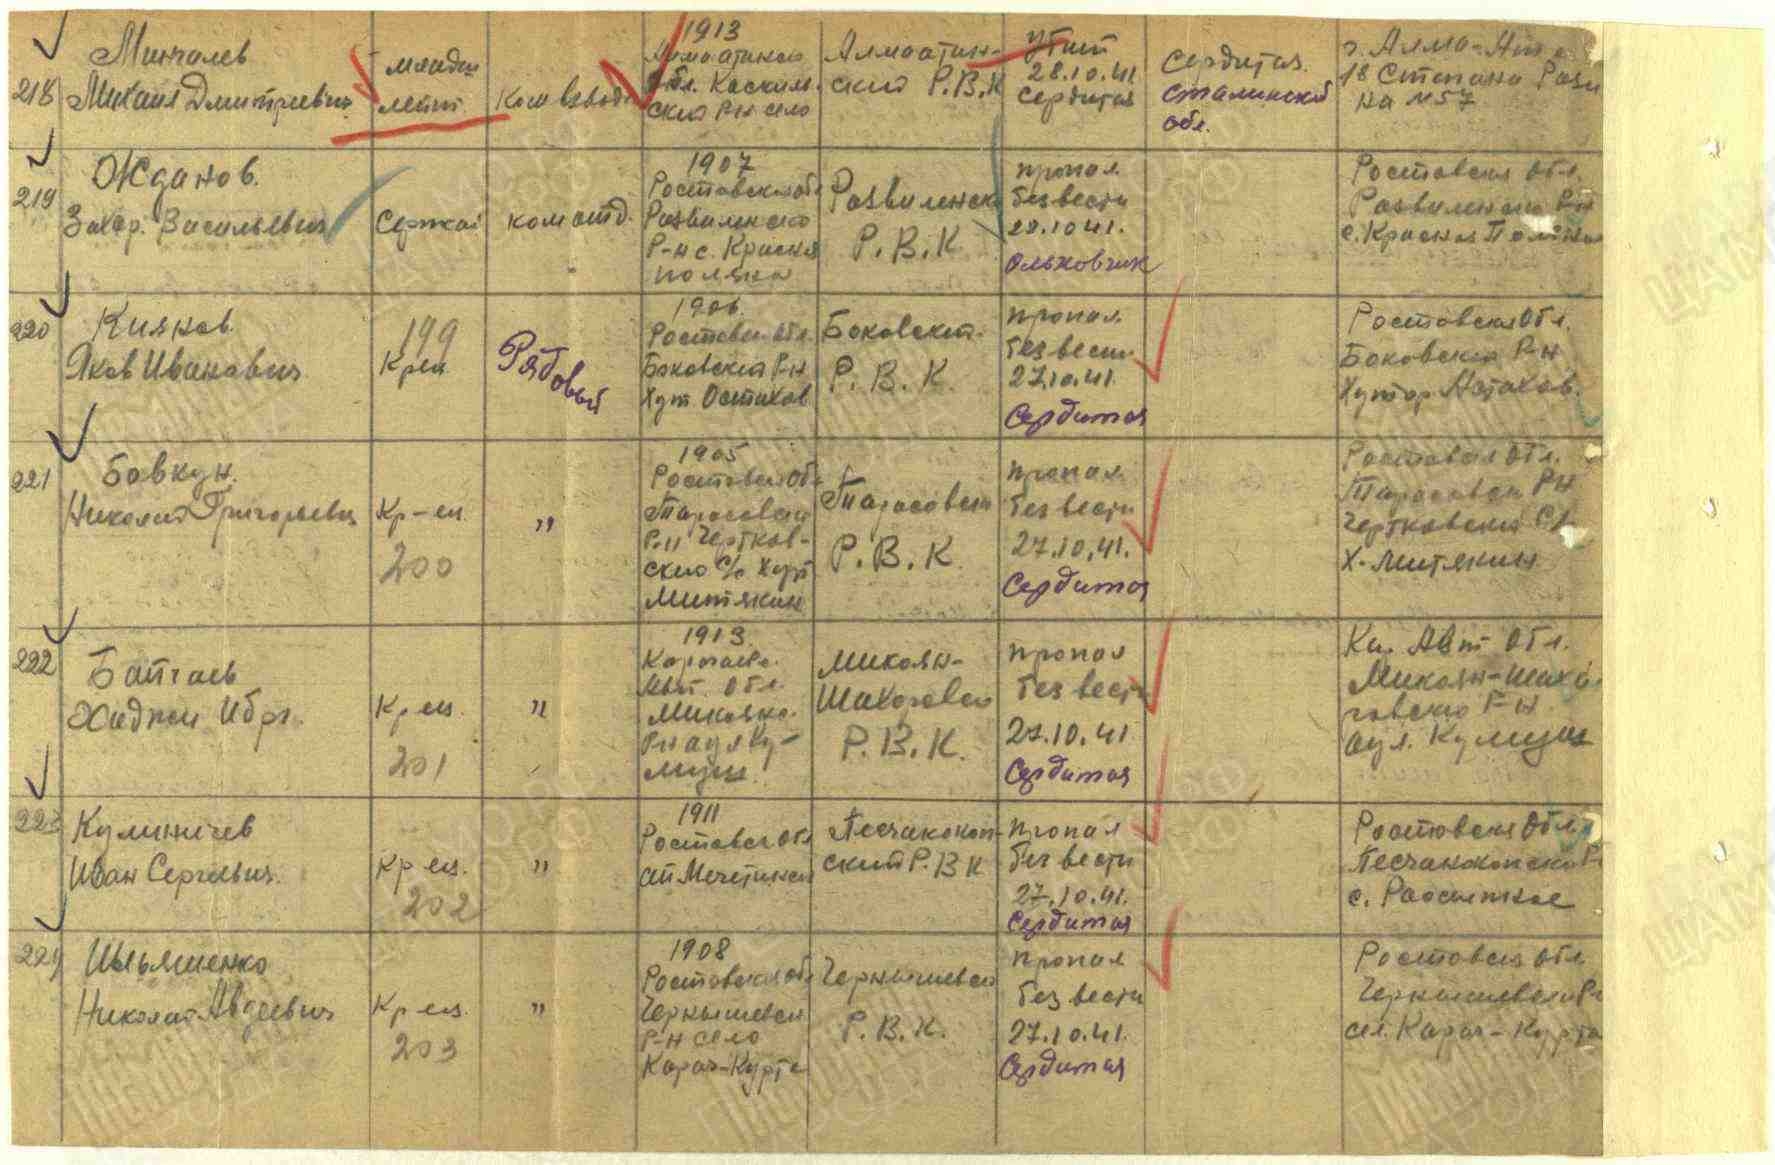 218
Минчалев
Михаил Дмитриевич
младш
лейт.
Ком взвода
1913
Алмаатинск
обл. Каскелен-
ский Р-н село
Алмаатин-
ский Р.В.К
убит
28.10.41
Сердитая
Сердитая
Сталинской
обл.
г. Алма-Ата
18 Степана Рази
на №57
219
Жданов.
Захар. Васильевич
Сержан
ком отд.
1907
Ростовская об
Развиленско
Р-н с. Красная
поляна
Развиленск
Р.В.К
пропал
без вести
28.10.41.
Ольховчик
Ростовская обл.
Развиленско Р-н
с. Красная Поляна
220
Кияков.
Яков Иванович
199
Крец
Рядовый
1906.
Ростовск обл.
Боковский Р-н
Хут. Остахов
Боковский.
Р.В.К.
пропал
без вести
27.10.41.
Сердитая
Ростовская обл.
Боковский Р-н
Хутор Астахов.
221
Бовкун.
Николай Григорьевич
Кр-ец.
200
"
1905
Ростовск об
Тарасовский
Р-н Чертков-
ский С/с Хут
Митякин
Тарасовски
Р.В.К.
пропал
без вести
27.10.41.
Сердитая
Ростовская обл.
Тарасовски Р-н
Чертковский С/с
Х-Митякин
222
Батчаев
Хаджи Ибр.
Крец.
201
"
1913
Карачаев.
Авт. обл.
Микояно.
Р-н аул Ку-
мыш.
Микоян-
Шахаровск
Р.В.К.
пропал
без вести
27.10.41
Сердитая
Кч. Авт обл.
Микоян-Шаха
ровский Р-н
аул. Кумыш
223
Кулиничев
Иван Сергеевич.
Крец.
202
"
1911
Ростовск обл
ст Мечетинск
Песчанокоп-
ский Р.В К
пропал
без вести
27.10.41.
Сердитая
Ростовская обл.
Песчанокопско Р-
с. Рассыпное
224
Ильяшенко
Николай Авдеевич
Крец.
203
"
1908
Ростовская об
Чернышевск
Р-н село
Карач-Курта
Чернышевск
Р.В.К.
пропал
без вести
27.10.41.
Сердитая
Ростовская обл
Чернышевски Р-
сел. Карач-Курта